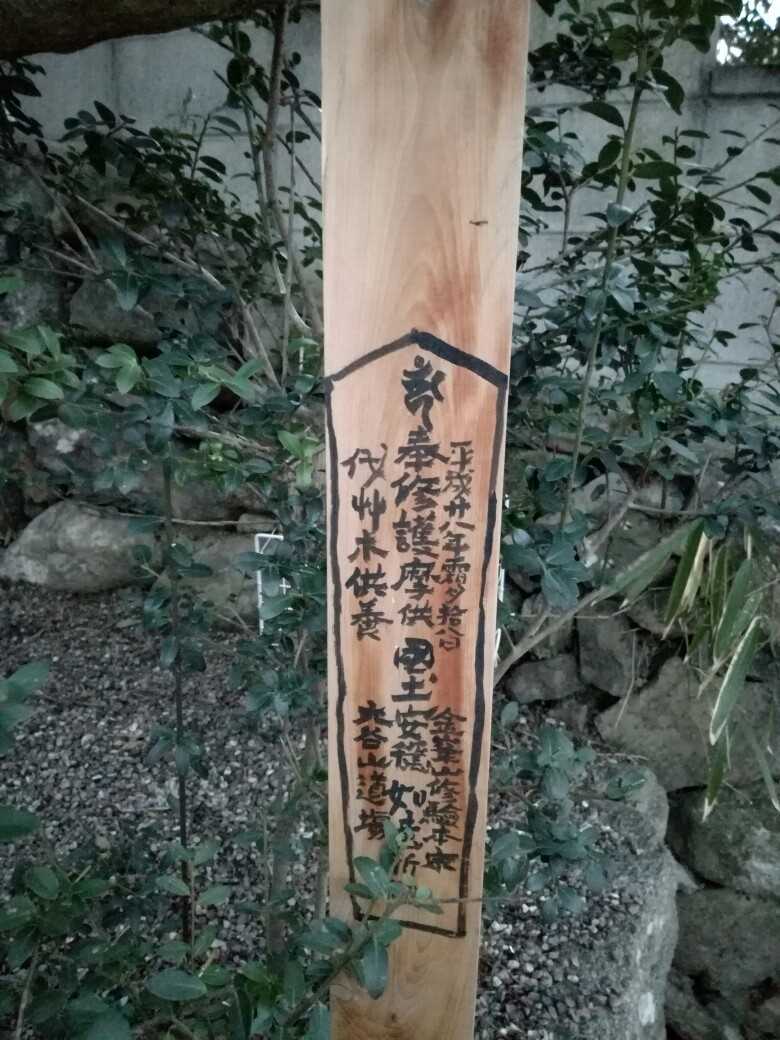 平成廿八年霜月拾八日 金峯山修験本宗
奉修護摩供 國土安穏 如意祈
伐艸木供養 大谷山道場